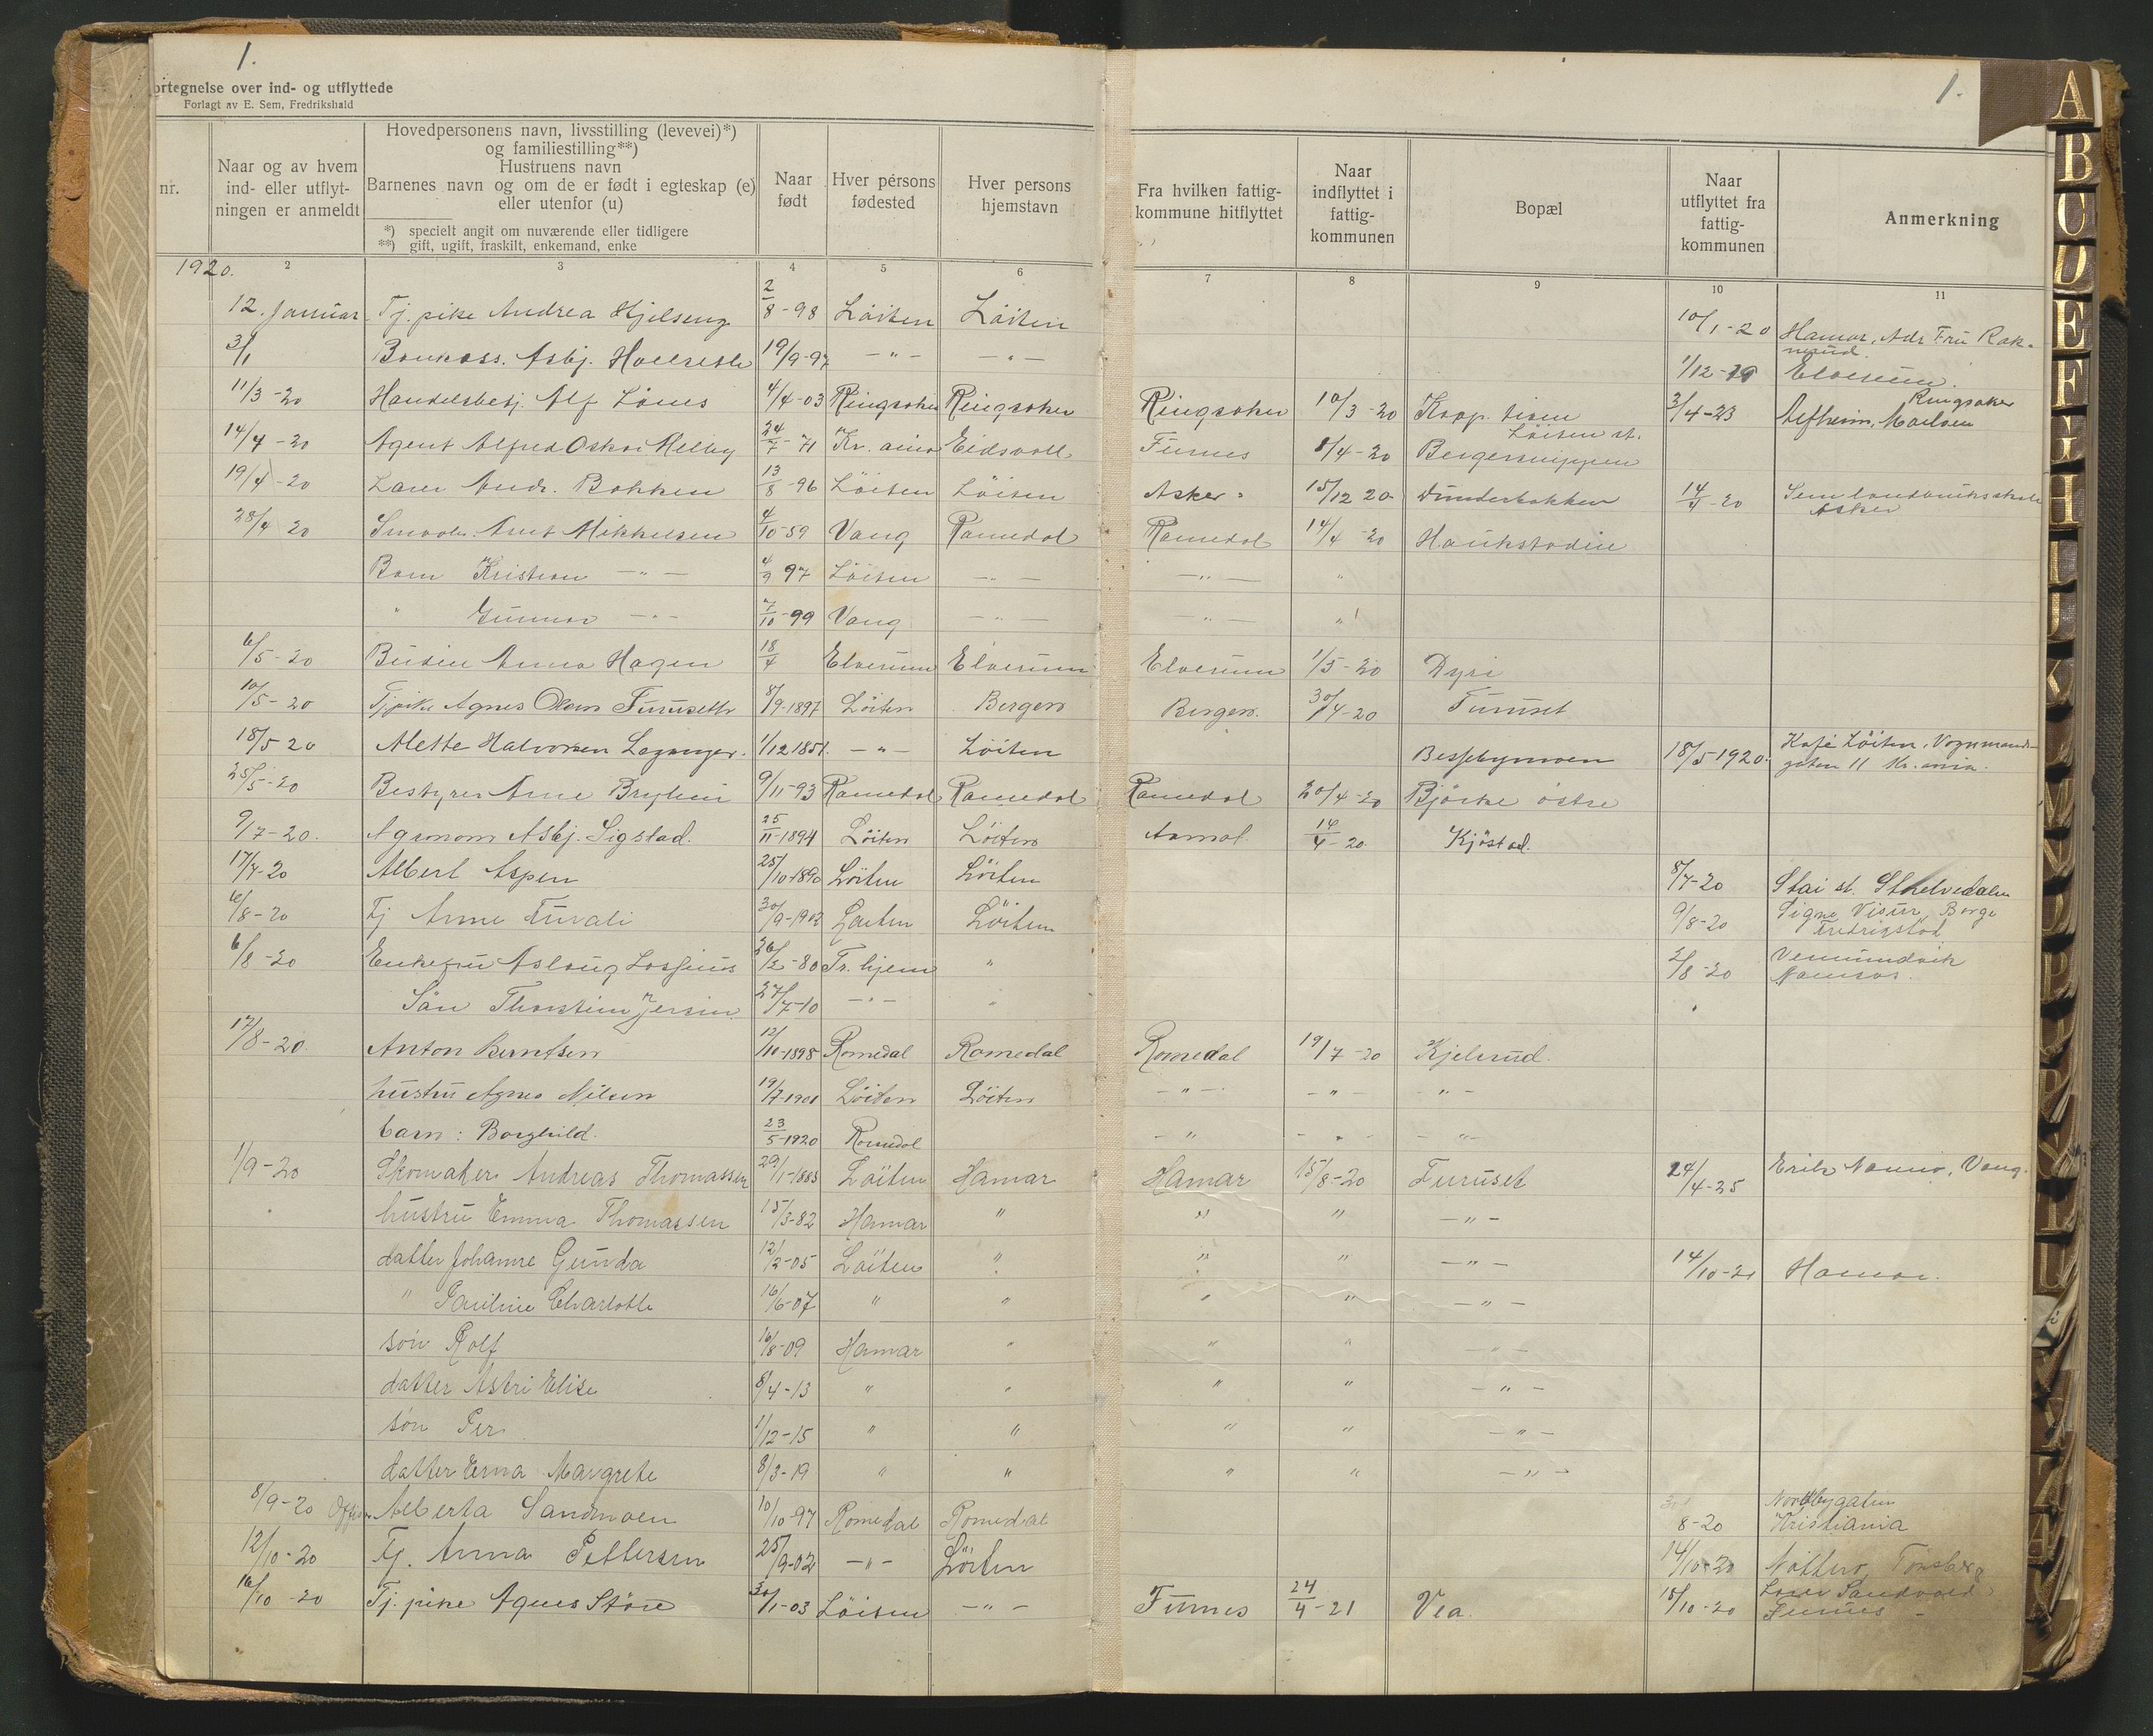 1.
ortegnelse over ind- og utflyttede
Forlagt av E. Sem, Fredrikshald
1.
nr.
Naar og av hvem ind- eller utflyt- ningen er anmeldt
Hovedpersonens navn, livsstilling (levevei)*)
og familiestilling**)
Hustruens navn
Barnenes navn og om de er født i egteskap (e)
eller utenfor (u)
*) specielt angit om nuværende eller tidligere
**) gift, ugift, fraskilt, enkemand, enke
Naar født
Hver persons fødested
Hver persons hjemstavn
Fra hvilken fattig- kommune hitflyttet
Naar indflyttet i fattig- kommunen
Bopæl
Naar utflyttet fra fattig- kommunen
Anmerkning
1920. 2 3 4 5 6 7 8 9 10 11
12. Januar Tj. pike Andrea Hjelseng 2/8-98 Löiten Löiten 10/1-20 Hamar, Adr Fru Rak-
3/1 Asbj. 19/9-97 -"- -"- 1/12-19 Elverum.
11/3-20 Handelsbetj. Alf Löms 4/4-03 Ringsaker Ringsaker Ringsaker 10/3-20 Koop. Löiten st. 3/4-23 Ringsaker
14/4-20 Agent Alfred Oskar Melby 24/7-71 Kr.ania Eidsvoll Furnes 8/4-20
19/4-20 Andr. Bakken 13/8-96 Löiten Löiten Asker 15/12 20 Dunderbakken 14/4-20 Sem landbruksskole Asker
28/4 20 Arnt Mikkelsen 4/10-59 Vang Romedal Romedal 14/4-20 Haukstadie
Barn Kristian -"- 4/9 97 Löiten -"- -"- "
" Gunnar -"- 7/10-99 Vang -"- -"- "
6/5-20 Anna Hagen 18/4 Elverum Elverum Elverum 1/5-20 Dyri
10/5-20 Tjpike Agnes Olsen Furuseth 8/9-1897 Löiten Bergen Bergen. 30/4-20 Furuset
18/5 20 Alette Halvorsen Leganger. 1/12 1851. -"- Löiten Bessebymoen 18/5 1920. Kafé Löiten, Vognmands- gaten 11 Kr.ania.
25/5-20 Bestyrer Arne Bryhni 9/11-93 Romedal Romedal Romedal 20/4-20 Björke östre
9/7-20. Agronom Asbj. Sigstad. 25/11-1894 Löiten Löiten 14/4-20 Kjöstad.
17/7-20 Albert Aspen 25/10-1890 Löiten Löiten 8/7-20 Stai st. Storelvedalen
6/8-20 Tj Anne 30/9-1902 Löiten Löiten 9/8-20 Signe Borge Fredrikstad
6/8-20 Enkefru Aslaug Lossius 26/2-80 Tr.hjem " 2/8-20 Vemundvik Namsos.
Sön Thorstein 27/7-10 -"- "
17/8-20. Anton Berntsen 12/10-1898 Romedal Romedal Romedal 19/7-20 Kjelsrud.
hustru Agnes Nilsen 19/7-1901 Löiten Löiten -"- -"- "-
barn: Borghild. 23/5-1920 Romedal -" -"- -"-
1/9-20 Skomaker Andreas Thomassen 29/1-1885 Löiten Hamar Hamar 15/8-20 Furuset 24/4-25 Erik Vang.
hustru Emma Thomassen 15/3-82 Hamar " " " -"-
datter Johanne Gunda 12/2-05 Löiten " " " -"- 14/10-21 Hamar.
" Pauline Charlotte 16/6-07 " " " " -"-
sön Rolf 16/8-09 Hamar " " " -"-
datter Astri Elise 8/4-13 " " " " -"-
sön Per 1/12-15 " " " " -"-
datter Erna Margrete 8/3-19 " " " " -"-
8/9-20 Alberta Sandmoen 10/10-97 Romedal Romedal 8-20 Nordbygaten Kristiania
12/10-20 Tj. Anna Pettersen 25/9-02 -"- Löiten 14/10-20 Nötterö, Tönsberg
16/10-20 Tj. pike Agnes Störe 30/1-03 Löiten -"- Furnes 24/4-21 Vea 15/10-20 Furnes
A
B
C
D
E
F
G
I